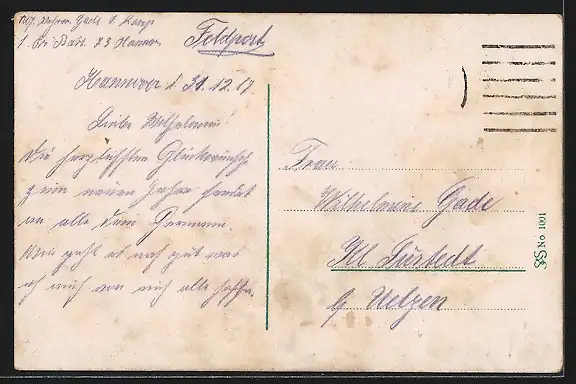 Gade 1. Komp
1. Hannov
Feldpost
Hannover d. 31.12.17
Liebe Wilhelmine!
Die herzlichsten Glückwünsche
zum neuen Jahre sendet
an alle dein Hermann.
Mir geht es noch gut was
ich auch von euch alle hoffe.
Frau
Wilhelmine Gade
Kl Süstedt
b/ Uelzen
No 1001